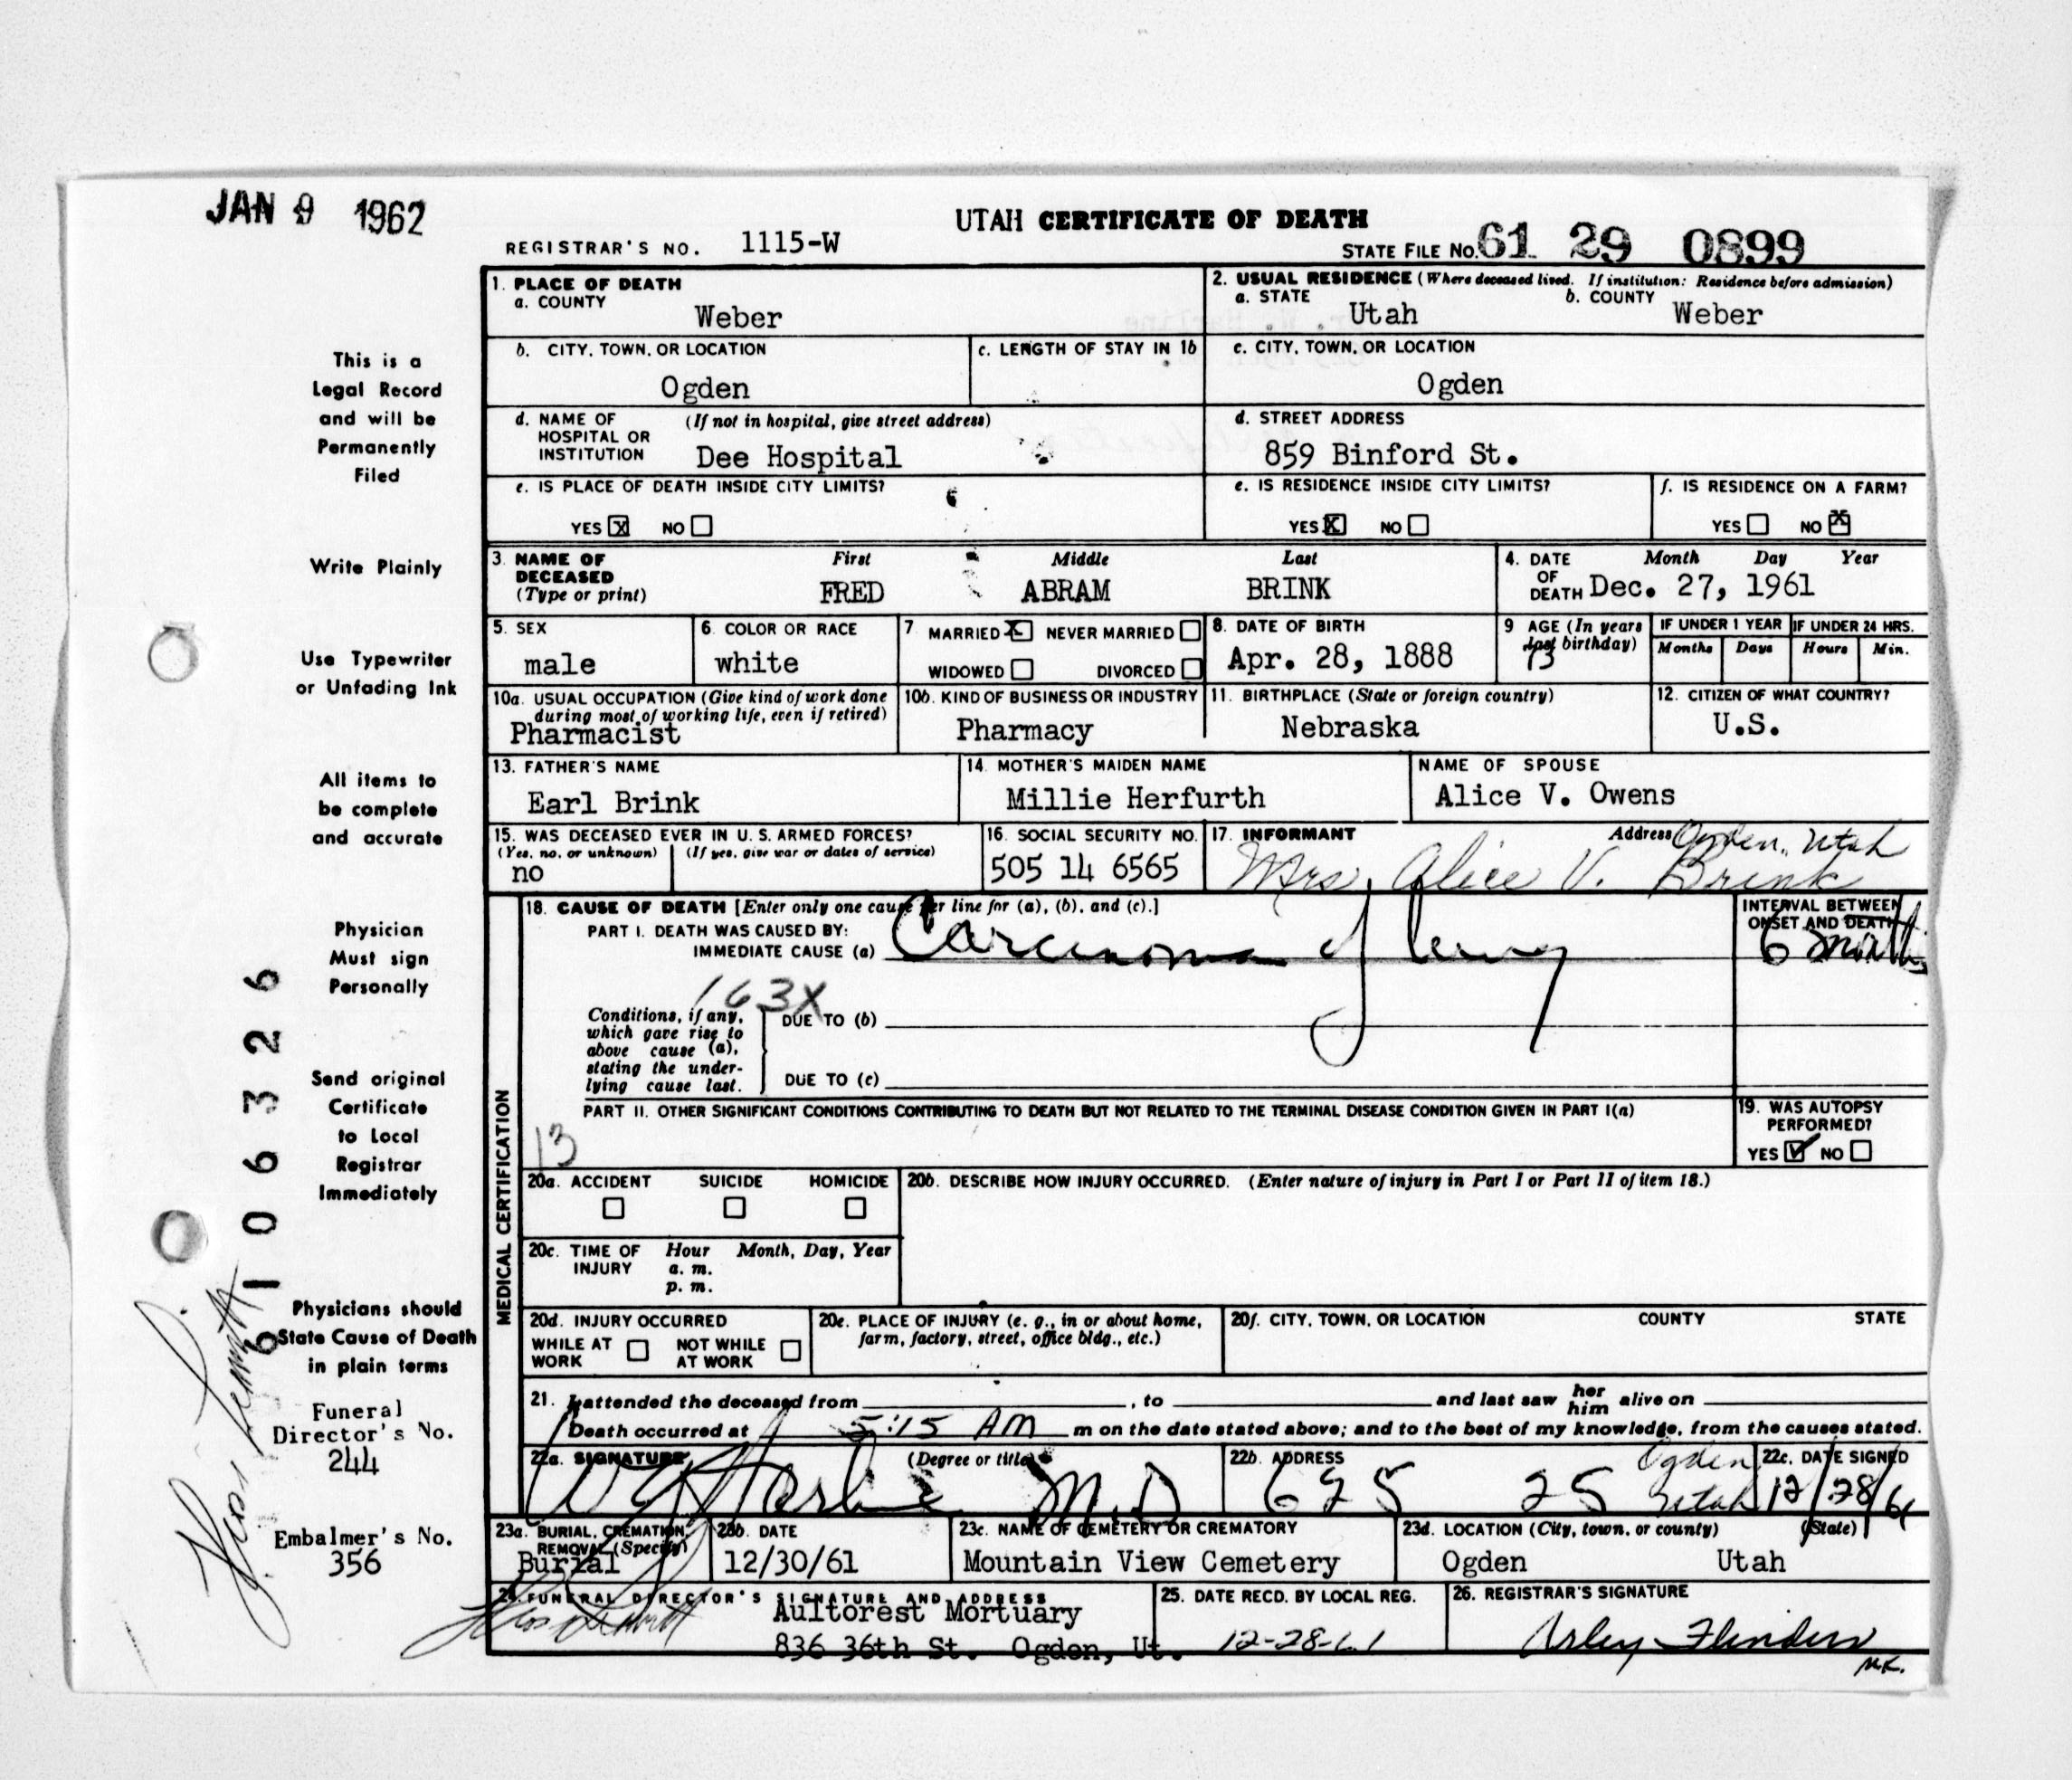 JAN 9 1962
UTAH CERTIFICATE OF DEATH
REGISTRAR'S NO. 1115-W
STATE FILE No. 61 29 0899
1. PLACE OF DEATH
a. COUNTY
Weber
2. USUAL RESIDENCE (Where deceased lived. If institution: Residence before admission)
a. STATE
Utah
b. COUNTY
Weber
b. CITY, TOWN, OR LOCATION
Ogden
c. LENGTH OF STAY IN 1b
c. CITY, TOWN, OR LOCATION
Ogden
d. NAME OF HOSPITAL OR INSTITUTION (If not in hospital, give street address)
Dee Hospital
d. STREET ADDRESS
859 Binford St.
e. IS PLACE OF DEATH INSIDE CITY LIMITS?
YES X NO
e. IS RESIDENCE INSIDE CITY LIMITS?
YES X NO
f. IS RESIDENCE ON A FARM?
YES NO X
3. NAME OF DECEASED (Type or print)
First Middle Last
FRED ABRAM BRINK
4. DATE OF DEATH Month Day Year
Dec. 27, 1961
5. SEX
male
6. COLOR OR RACE
white
7. MARRIED X NEVER MARRIED
WIDOWED DIVORCED
8. DATE OF BIRTH
Apr. 28, 1888
9 AGE (In years last birthday)
73
IF UNDER 1 YEAR IF UNDER 24 HRS.
Months Days Hours Min.
10a. USUAL OCCUPATION (Give kind of work done during most of working life, even if retired)
Pharmacist
10b. KIND OF BUSINESS OR INDUSTRY
Pharmacy
11. BIRTHPLACE (State or foreign country)
Nebraska
12. CITIZEN OF WHAT COUNTRY?
U.S.
13. FATHER'S NAME
Earl Brink
14. MOTHER'S MAIDEN NAME
Millie Herfurth
NAME OF SPOUSE
Alice V. Owens
15. WAS DECEASED EVER IN U.S. ARMED FORCES?
(Yes, no, or unknown) (If yes, give war or dates of service)
no
16. SOCIAL SECURITY NO.
505 14 6565
17. INFORMANT
Address Ogden, Utah
Mrs. Alice V. Brink
MEDICAL CERTIFICATION
18. CAUSE OF DEATH [Enter only one cause per line for (a), (b), and (c).]
PART I. DEATH WAS CAUSED BY:
IMMEDIATE CAUSE (a) Carcinoma of lung
INTERVAL BETWEEN ONSET AND DEATH
6 months
163X
Conditions, if any, which gave rise to above cause (a), stating the underlying cause last.
DUE TO (b)
DUE TO (c)
PART II. OTHER SIGNIFICANT CONDITIONS CONTRIBUTING TO DEATH BUT NOT RELATED TO THE TERMINAL DISEASE CONDITION GIVEN IN PART I(a)
13
19. WAS AUTOPSY PERFORMED?
YES NO
20a. ACCIDENT SUICIDE HOMICIDE
20b. DESCRIBE HOW INJURY OCCURRED. (Enter nature of injury in Part I or Part II of item 18.)
20c. TIME OF INJURY Hour Month, Day, Year
a. m.
p. m.
20d. INJURY OCCURRED
WHILE AT WORK NOT WHILE AT WORK
20e. PLACE OF INJURY (e. g., in or about home, farm, factory, street, office bldg., etc.)
20f. CITY, TOWN, OR LOCATION COUNTY STATE
21. I attended the deceased from , to and last saw her him alive on
Death occurred at 5:15 AM m on the date stated above; and to the best of my knowledge, from the causes stated.
22a. SIGNATURE (Degree or title)
M.D
22b. ADDRESS
625 25 Ogden Utah
22c. DATE SIGNED
12/28/61
23a. BURIAL, CREMATION, REMOVAL (Specify)
Burial
23b. DATE
12/30/61
23c. NAME OF CEMETERY OR CREMATORY
Mountain View Cemetery
23d. LOCATION (City, town, or county) (State)
Ogden Utah
24. FUNERAL DIRECTOR'S SIGNATURE AND ADDRESS
Aultorest Mortuary
836 36th St. Ogden, Ut.
25. DATE RECD. BY LOCAL REG.
12-28-61
26. REGISTRAR'S SIGNATURE
Arley Flinders
M.K.
This is a
Legal Record
and will be
Permanently
Filed
Write Plainly
Use Typewriter
or Unfading Ink
All items to
be complete
and accurate
Physician
Must sign
Personally
Send original
Certificate
to Local
Registrar
Immediately
Physicians should
State Cause of Death
in plain terms
Funeral
Director's No.
244
Embalmer's No.
356
6106326